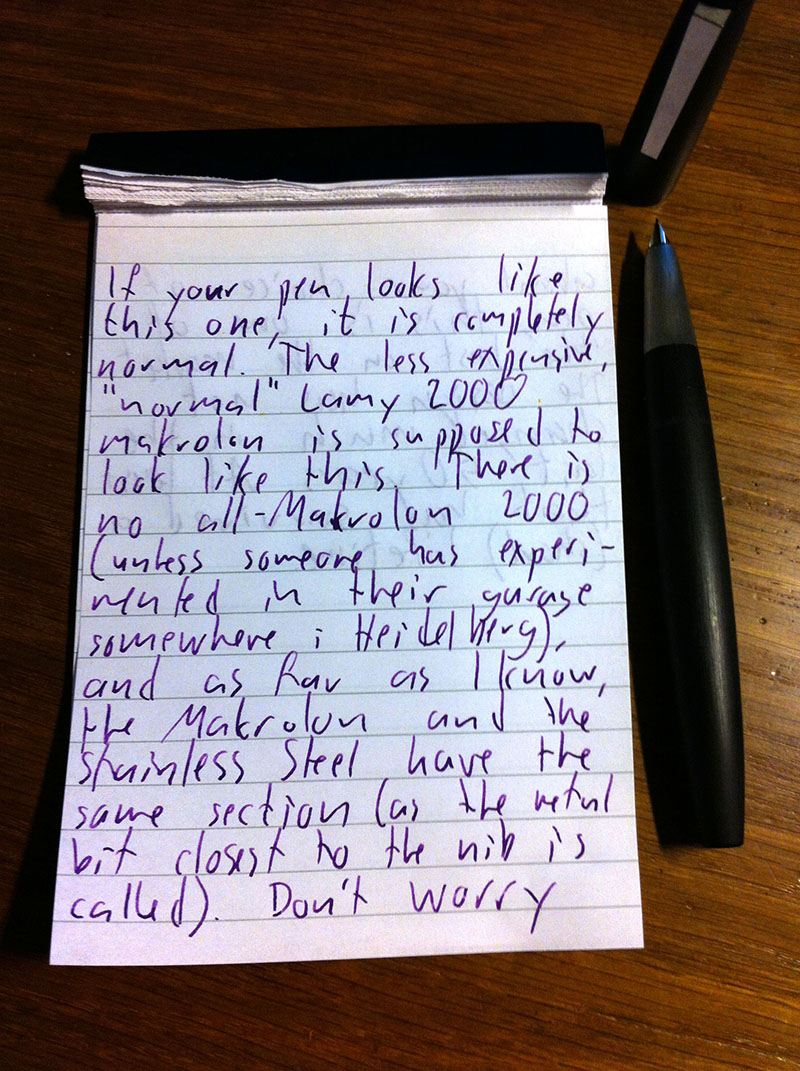 If your pen looks like
this one, it is completely
normal. The less expensive,
"normal" Lamy 2000
makrolon is supposed to
look like this. There is
no all-Makrolon 2000
(unless someone has experi-
mented in their garage
somewhere i Heidelberg),
and as far as I know,
the Makrolon and the
Stainless Steel have the
same section (as the metal
bit closest to the nib is
called). Don't worry